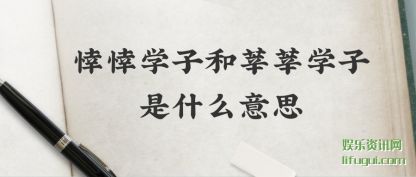 悻悻学子和莘莘学子
是什么意思
娱乐资讯网
lifugui.com